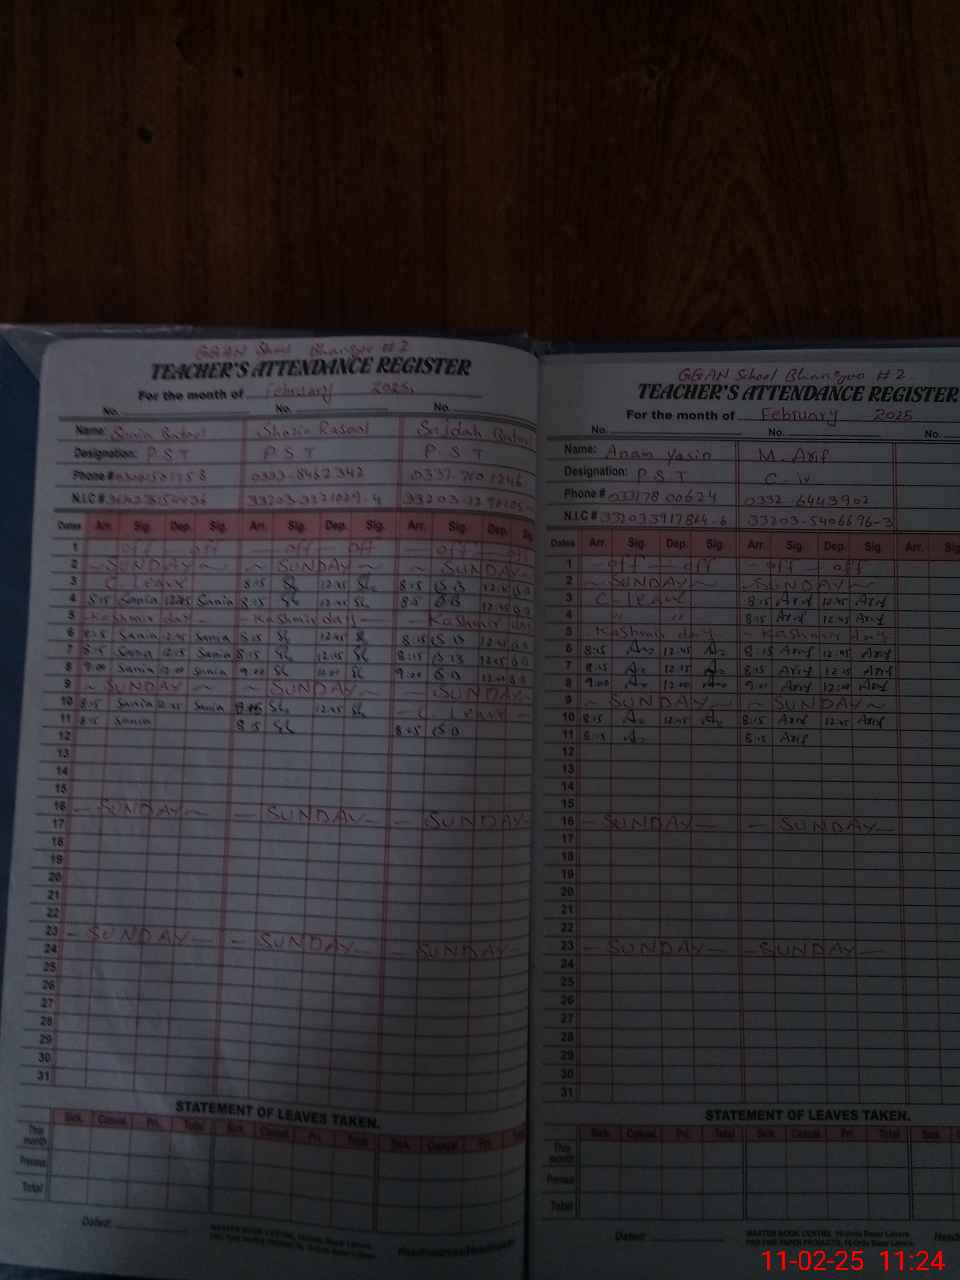 GGAN School Bhangoo # 2
TEACHER'S ATTENDANCE REGISTER
For the month of February 2025.
No. No. No.
Name: Sania Batool Shazia Rasool Batool
Designation: P.S.T P.S.T P.S.T
Phone # 0303-8462342
N.I.C #
Dates Arr. Sig. Dep. Sig. Arr. Sig. Dep. Sig. Arr. Sig. Dep. Sig.
1 off off off off off off
2 ~ SUNDAY ~ ~ SUNDAY ~ ~ SUNDAY
3 C. leave 8:15 Sh 12:45 Sh 8:15 SB 12:45
4 8:15 Sania 12:45 Sania 8:15 Sh 12:45 Sh 8:15 SB 12:45
5 Kashmir day - Kashmir day - - Kashmir day
6 8:15 Sania 12:45 Sania 8:15 Sh 12:45 Sh 8:15 SB 12:45
7 8:15 Sania 12:15 Sania 8:15 Sh 12:15 Sh 8:15 SB
8 9:00 Sania 12:00 Sania 9:00 Sh 12:00 Sh 9:00 SB 12:00
9 ~ SUNDAY ~ ~ SUNDAY ~ SUNDAY
10 8:15 Sania 12:45 Sania 8:15 Sh 12:45 Sh - C leave -
11 8:15 Sania 8:15 Sh 8:15 SB
12
13
14
15
16 - SUNDAY ~ - SUNDAY - - SUNDAY -
17
18
19
20
21
22
23 - SUNDAY - - SUNDAY - SUNDAY -
24
25
26
27
28
29
30
31
STATEMENT OF LEAVES TAKEN.
Sick. Casual. Pri. Total Sick. Casual. Pri. Total Sick. Casual. Pri.
This month
Previous
Total
Dated:
MASTER BOOK CENTRE, 16-Urdu Bazar Lahore.
PAK FINE PAPER PRODUCTS, 16-Urdu Bazar Lahore.
Headmaster/Headmistress
GGAN School Bhangoo # 2
TEACHER'S ATTENDANCE REGISTER
For the month of February 2025
No. No. No.
Name: Anam Yasin M. Arif
Designation: P.S.T C.
Phone # 033178 00624 0332-6443902
N.I.C # 33203-5406696-3
Dates Arr. Sig. Dep. Sig. Arr. Sig. Dep. Sig. Arr. Sig.
1 - off - off - off - off
2 ~ SUNDAY ~ ~ SUNDAY ~
3 C. leave 8:15 Arif 12:45 Arif
4 " " 8:15 Arif 12:45 Arif
5 Kashmir day - Kashmir day
6 8:15 12:45 8:15 Arif 12:45 Arif
7 8:15 12:15 8:15 Arif 12:15 Arif
8 9:00 12:00 9:00 Arif 12:00 Arif
9 ~ SUNDAY ~ ~ SUNDAY ~
10 8:15 12:45 8:15 Arif 12:45 Arif
11 8:15 8:15 Arif
12
13
14
15
16 - SUNDAY - - SUNDAY -
17
18
19
20
21
22
23 - SUNDAY - SUNDAY -
24
25
26
27
28
29
30
31
STATEMENT OF LEAVES TAKEN.
Sick. Casual. Pri. Total Sick. Casual. Pri. Total Sick.
This month
Previous
Total
Dated:
MASTER BOOK CENTRE, 16-Urdu Bazar Lahore.
PAK FINE PAPER PRODUCTS, 16-Urdu Bazar Lahore.
11-02-25 11:24